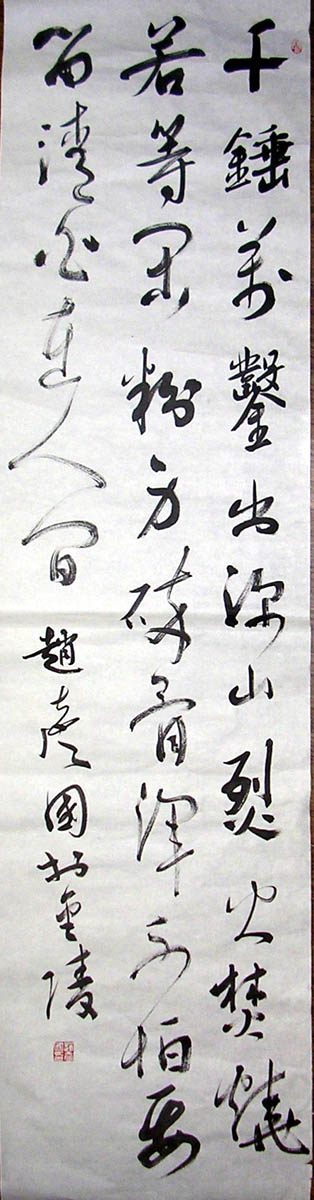 千錘萬鑿出深山烈火焚燒
若等閑粉身碎骨渾不怕要
留清白在人間 趙彥國於金陵